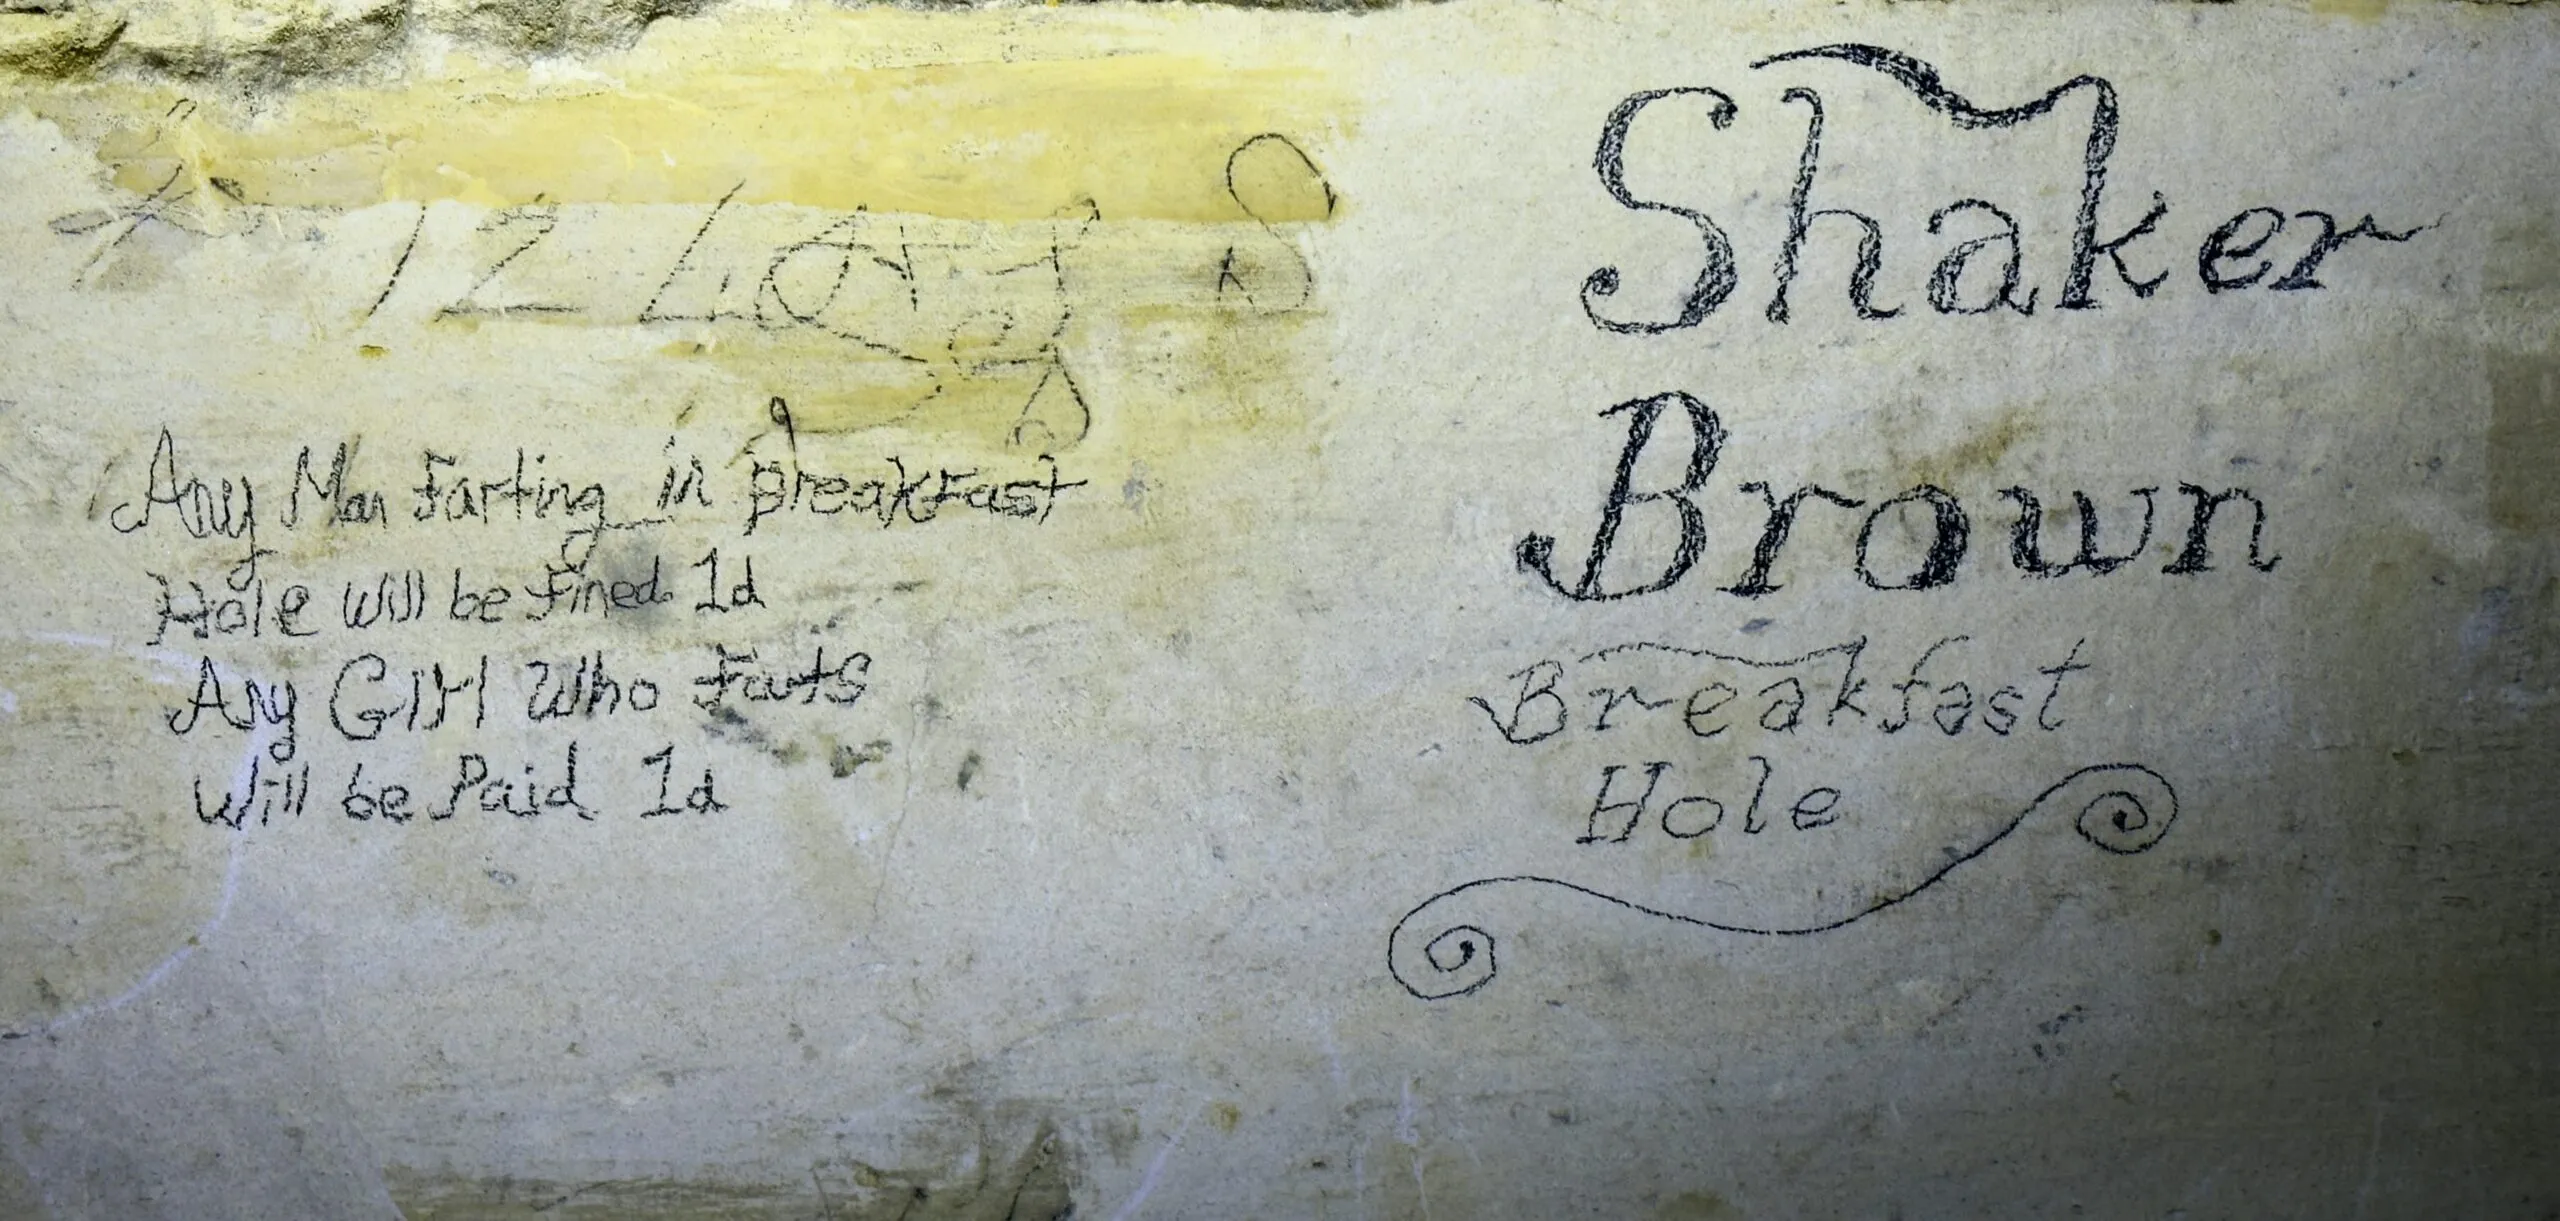 12
Any Man Farting in Breakfast
Hole will be Fined 1d
Any Girl Who Farts
will be Paid 1d
Shaker
Brown
Breakfast
Hole